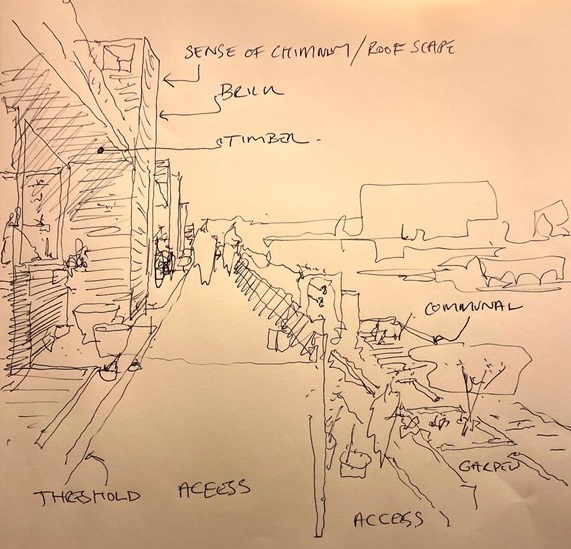 SENSE OF CHIMNEY/ROOF SCAPE
BRICK
TIMBER
COMMUNAL
GARDEN
THRESHOLD
ACCESS
ACCESS